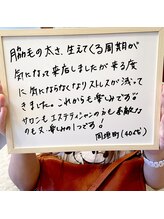 脇毛の太さ、生えてくる周期が
気になって来店しましたが来る度
に気にならなくなりストレスが減って
きました。これからも楽しみです!!
サロンもエステティシャンの方も素敵な
のも又楽しみの1つです!